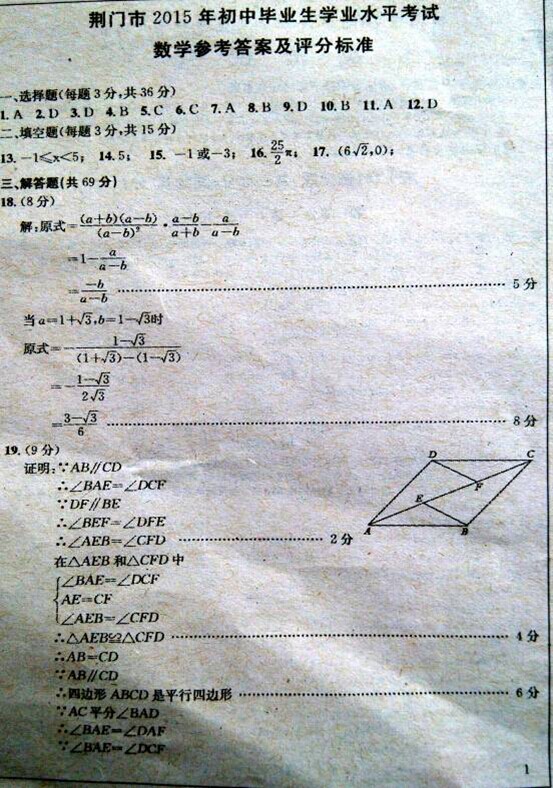 荆门市 2015 年初中毕业生学业水平考试
数学参考答案及评分标准
一、选择题(每题 3 分,共 36 分)
1. A 2. D 3. D 4. B 5. C 6. C 7. A 8. B 9. D 10. B 11. A 12. D
二、填空题(每题 3 分,共 15 分)
13. -1≤x<5; 14. 5; 15. -1 或 -3; 16. 25/2 π; 17. (6√2,0);
三、解答题(共 69 分)
18. (8 分)
解:原式=(a+b)(a-b)/(a-b)²·a-b/a+b-a/a-b
=1-a/a-b
=-b/a-b ………… 5 分
当 a=1+√3,b=1-√3时
原式=-1-√3/(1+√3)-(1-√3)
=-1-√3/2√3
=3-√3/6 ………… 8 分
19. (9 分)
证明:∵AB∥CD
∴∠BAE=∠DCF
∵DF∥BE
∴∠BEF=∠DFE
∴∠AEB=∠CFD ………… 2 分
在△AEB 和△CFD 中
∠BAE=∠DCF
AE=CF
∠AEB=∠CFD
∴△AEB≌△CFD ………… 4 分
∴AB=CD
∵AB∥CD
∴四边形 ABCD 是平行四边形 ………… 6 分
∵AC 平分∠BAD
∴∠BAE=∠DAF
∵∠BAE=∠DCF
D C
F
E
A B
1